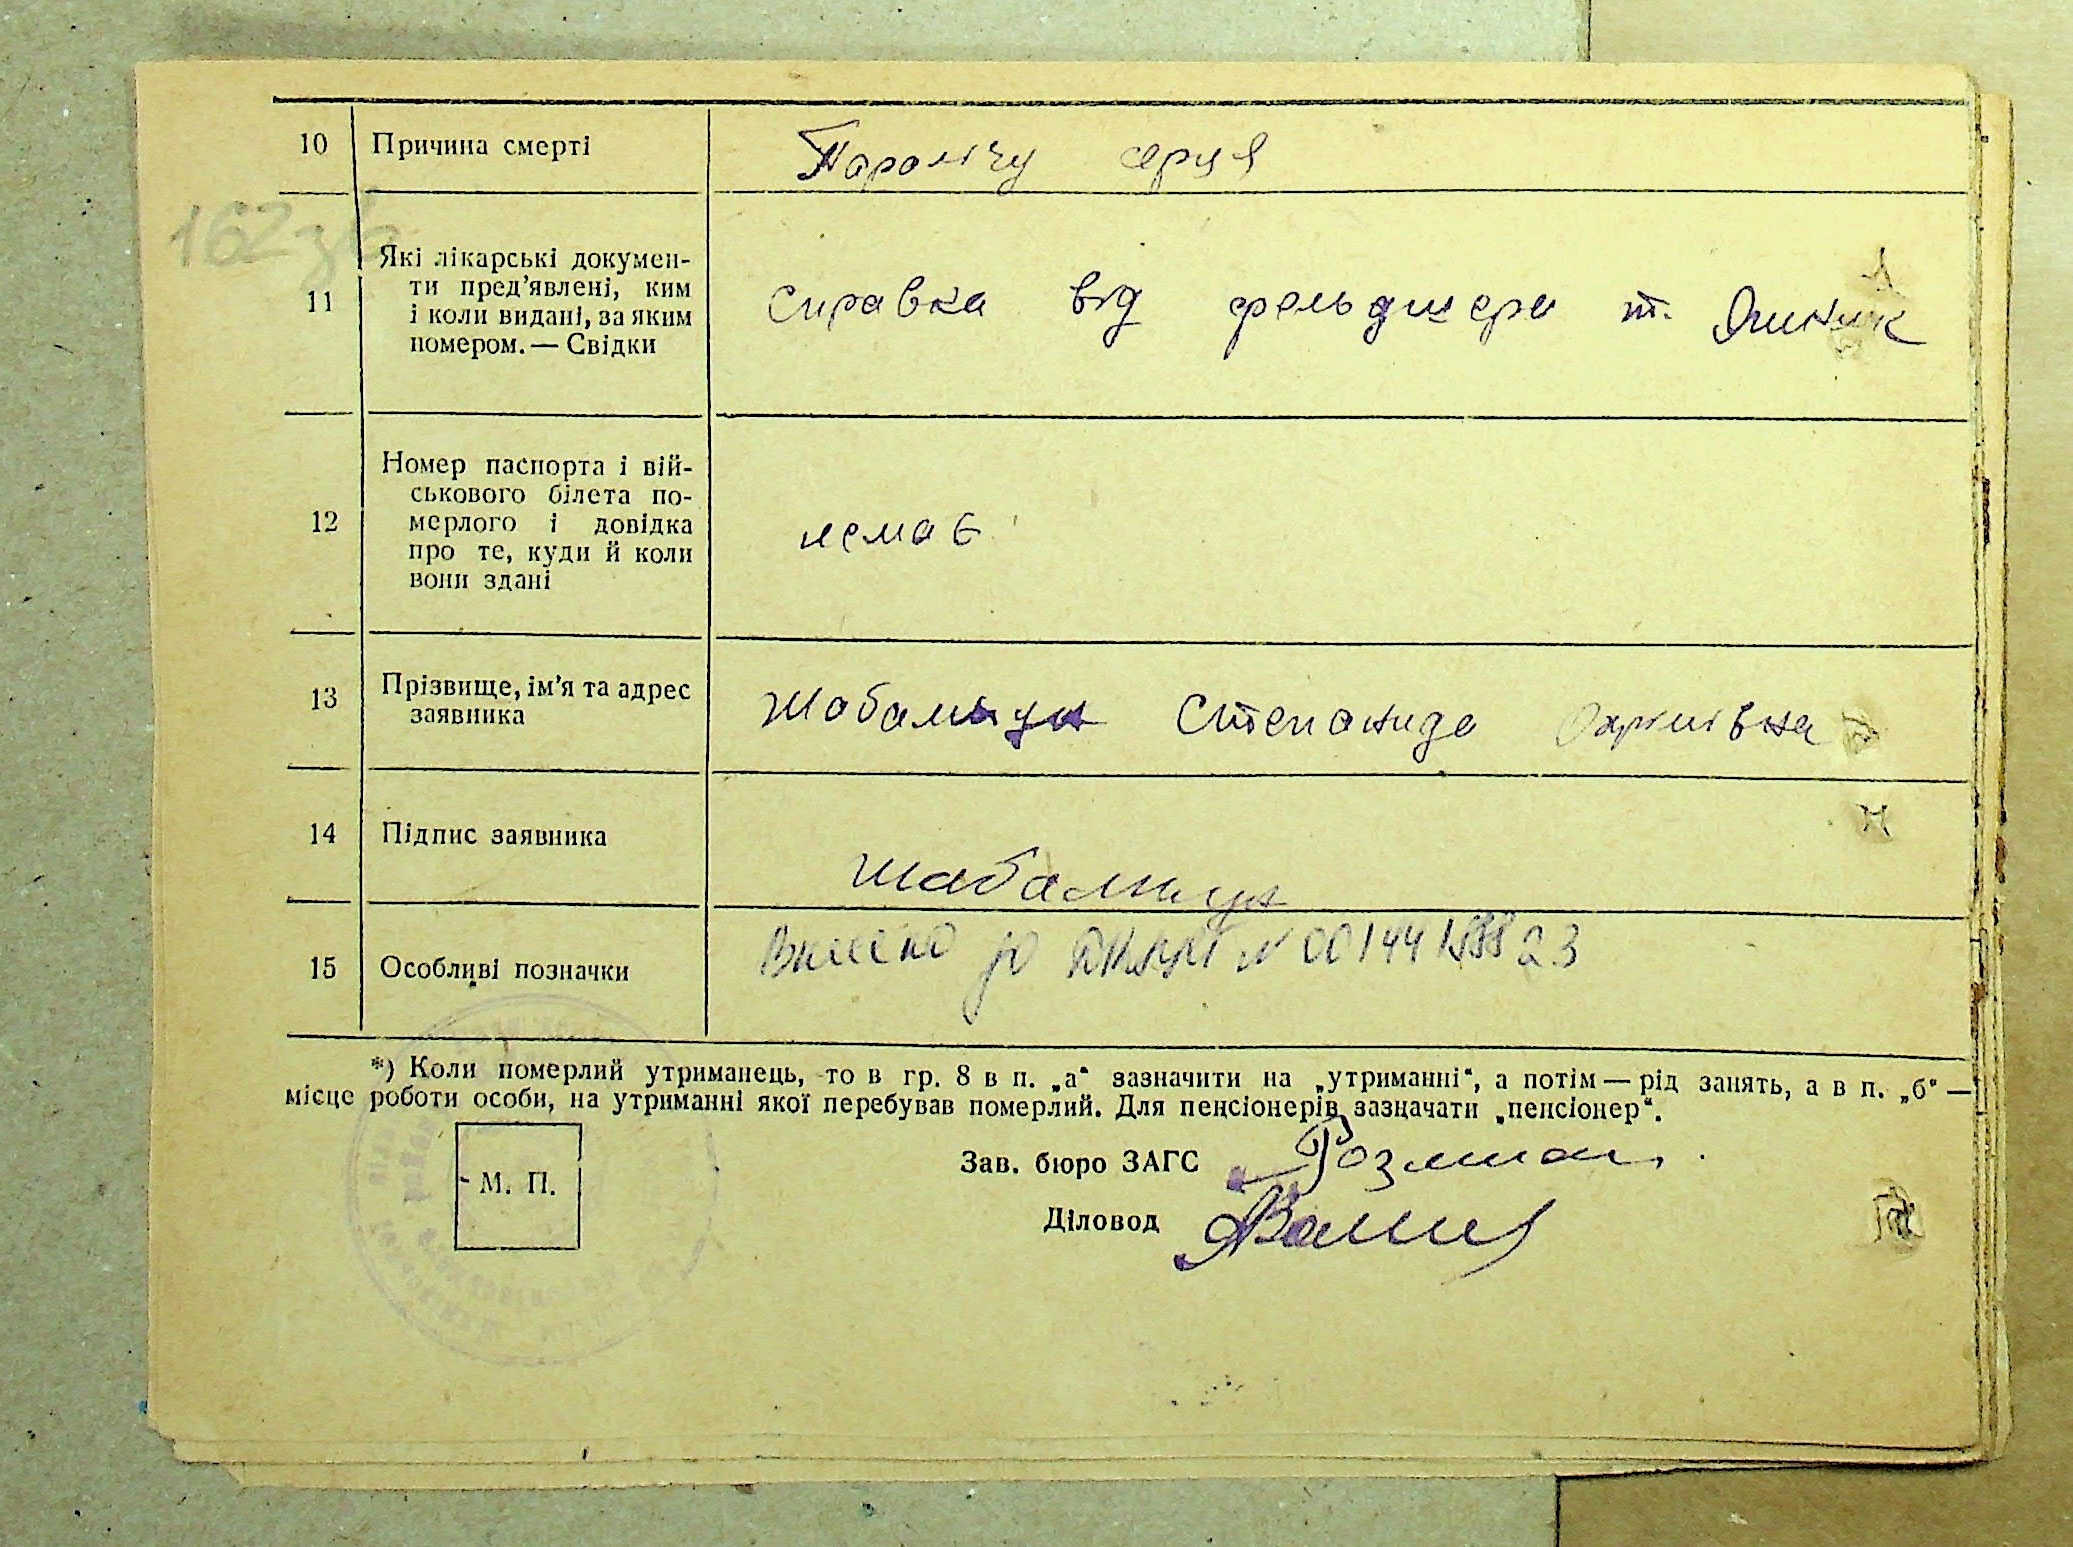 10 Причина смерті Паралічу серця
162 зв
11 Які лікарські докумен-
ти пред’явлені, ким
і коли видані, за яким
номером. — Свідки
Справка від фельдшера т.
12 Номер паспорта і вій-
ськового білета по-
мерлого і довідка
про те, куди й коли
вони здані
немає
13 Прізвище, ім’я та адрес
заявника
Степанида
14 Підпис заявника
15 Особливі позначки Внесено до N 00144
*) Коли померлий утриманець, то в гр. 8 в п. „а“ зазначити на „утриманні“, а потім — рід занять, а в п. „б“ —
місце роботи особи, на утриманні якої перебував померлий. Для пенсіонерів зазначати „пенсіонер“.
М. П.
Зав. бюро ЗАГС
Діловод